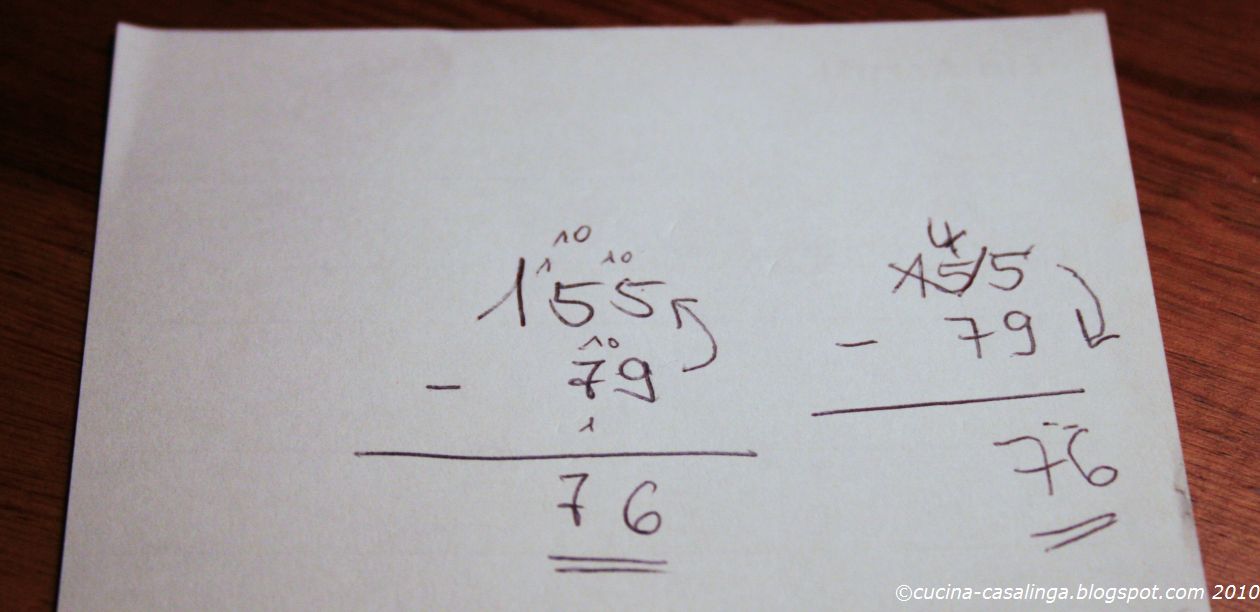 10
1 10
155
10
- 79
1
76
4
155
- 79
76
©cucina-casalinga.blogspot.com 2010